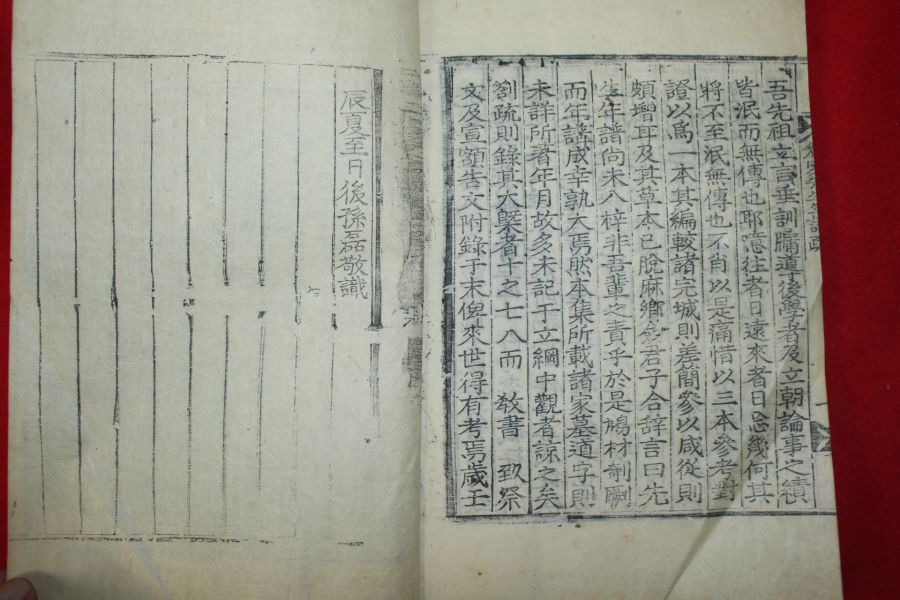 吾先祖立言垂訓牖道後學者及立朝論事之績
皆泯而無傳也耶噫往者日遠來者日忘幾何其
將不至泯無傳也不肖以是痛惜以三本參考對
證以爲一本其編較諸完城則差簡參以咸從則
頗增耳及其草本已脫麻鄉參君子合辭言曰先
生年譜尚未入梓非吾輩之責乎於是鳩材剞劂
而年譜成幸孰大焉然本集所載諸家墓道字則
未詳所著年月故多未記于立綱中觀者諒之矣
劄疏則錄其大槩者十之七八而 敎書 致祭
文及宣額告文附錄于末俾來世得有考焉歲壬
辰夏至月後孫磊敬識